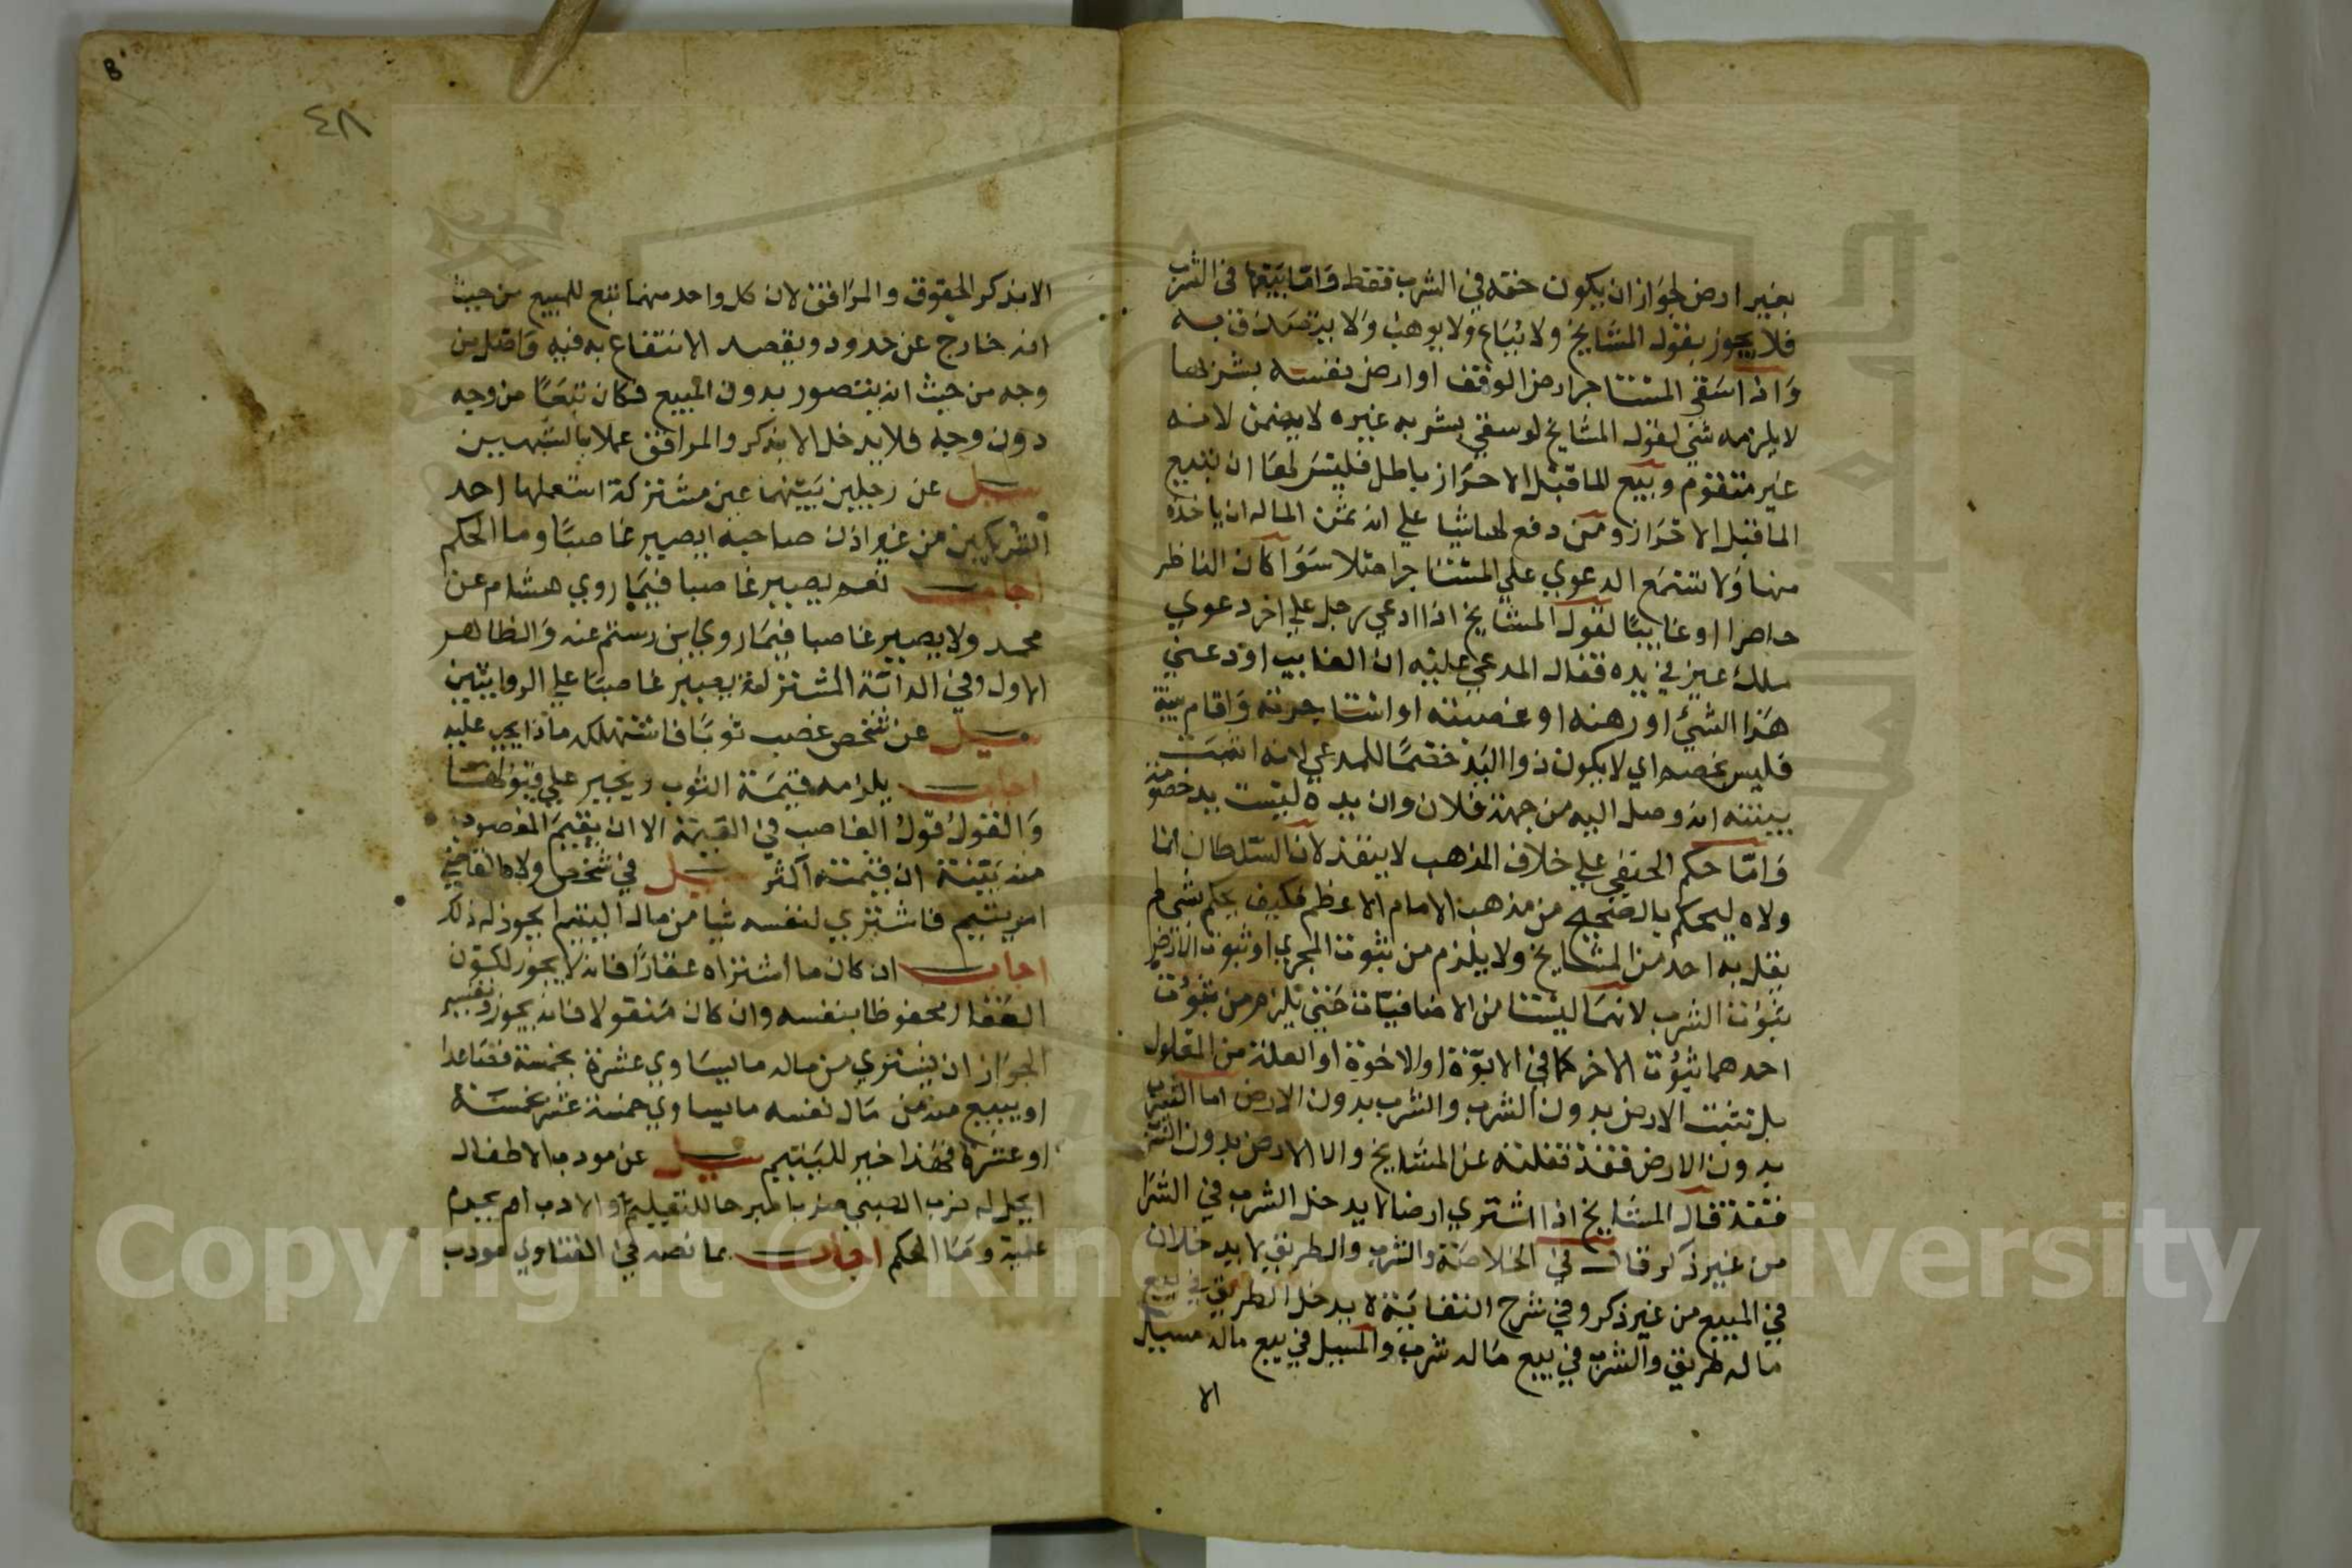 بغير ارض لجواز ان يكون حقه في الشرب فقط واما بيعها في الشرب
فلا يجوز بقول المشايخ ولا يباع ولا يوهب ولا يتصدق به
واذا اسقي المستاجر ارض الوقف او ارض نفسه بشربها
لا يلزمه شي لقول المشايخ لو سقي بشربه غيره لا يضمن لانه
غير متقوم وبيع الماقبل الاحراز باطل فليس لها ان تبيع
الماقبل الاحراز ومن دفع لها شيا علي انه ثمن الماله ان ياخذه
منها ولا تسمع الدعوي علي المستاجر اصلا سوا كان الناظر
حاضرا او غايبا لقول المشايخ اذا ادعي رجل علي اخر دعوي
ملك عين في يده فقال المدعي عليه ان الغايب اودعني
هذا الشي او رهنه او غصبته او استاجرته واقام بينة
فليس بخصم اي لا يكون ذوا اليد خصما للمدعي لانه اثبت
ببينته انه وصل اليه من جهة فلان وان يده ليست يد خصومة
واما حكم الحنفي علي خلاف المذهب لا ينفذ لان السلطان انما
ولاه ليحكم بالصحيح من مذهب الامام الاعظم فكيف يحكم بشي لم
يقل به احد من المشايخ ولا يلزم من ثبوت المجري او ثبوت الارض
ثبوت الشرب لانهما ليستا من الاضافيات حتي يلزم من ثبوت
احدهما ثبوت الاخر كما في الابوة او الاخوة او العلة من المعلول
بل تثبت الارض بدون الشرب والشرب بدون الارض اما الشرب
بدون الارض فقد نقلته عن المشايخ واما الارض بدون الشرب
فقد قال المشايخ اذا اشتري ارضا لا يدخل الشرب في الشرا
من غير ذكر قال في الخلاصة والشرب والطريق لا يدخلان
في المبيع من غير ذكر وفي شرح النقاية لا يدخل الطريق في بيع
ماله طريق والشرب في بيع ماله شرب والمسيل في بيع ماله مسيل
الا
٤٨
الا بذكر الحقوق والمرافق لان كل واحد منهما تبع للمبيع من حيث
انه خارج عن حدود ويقصد الانتفاع به فيه واصل من
وجه من حيث انه يتصور بدون المبيع فكان تبعا من وجه
دون وجه فلا يدخل الا بذكر والمرافق عملا بالشبهين
سيل عن رجلين بينهما عين مشتركة استعملها احد
الشريكين من غير اذن صاحبه ايصير غاصبا وما الحكم
اجاب نعم يصير غاصبا فيما روي هشام عن
محمد ولا يصير غاصبا فيما روي ابن رستم عنه والظاهر
الاول وفي الدابة المشتركة يصير غاصبا علي الروايتين
سيل عن شخص غصب ثوبا فاستهلكه ماذا يجب عليه
اجاب يلزمه قيمة الثوب ويجبر علي
والقول قول الغاصب في القيمة الا ان يقيم المغصوب
منه بينة ان قيمته اكثر سيل في شخص ولاه القاضي
امر يتيم فاشتري لنفسه شيا من مال اليتيم ايجوز له ذلك
اجاب ان كان ما اشتراه عقارا فانه لا يجوز لكون
العقار محفوظا بنفسه وان كان منقولا فانه يجوز وتفسير
الجواز ان يشتري من ماله ما يساوي عشرة بخمسة فصاعدا
او يبيع منه من مال نفسه ما يساوي خمسة عشر بخمسة
او عشرة فهذا خير لليتيم سيل عن مودب الاطفال
ايحل له ضرب الصبي ضربا مبرحا للتعليم او الادب ام يحرم
عليه وما الحكم اجاب بما نصه في الفتاوي مودب
Copyright © King Saud University